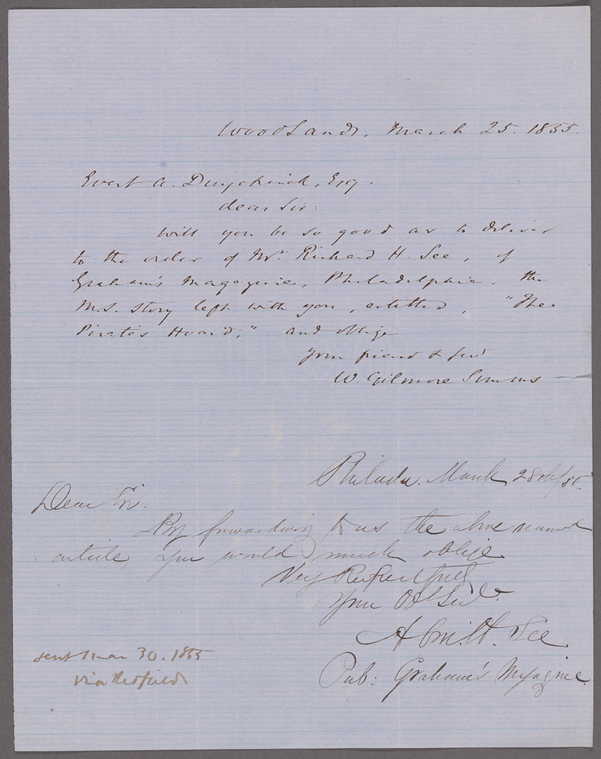 Woodlands, March 25. 1855.
Evert A. Duyckinck, Esq.
dear Sir:
Will you be so good as to deliver
to the order of Mr Richard H. See, of
Graham's Magazine, Philadelphia, the
M.S. story left with you, entitled, "The
Pirate's Hoard," and oblige
Your friend & Servt
W. Gilmore Simms
Philada. March 28th 55.
Dear Sir.
By forwarding to us the above named
article, you would much oblige
Very Respectfully
Your Obt Servt.
H. See
Pub: Graham's Magazine.
sent Mar 30. 1855
via Redfield